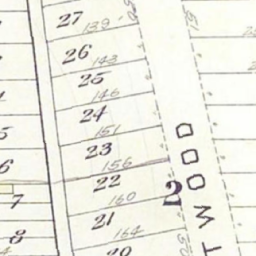 27
139
26
143
25
146
24
151
23
156
22
160
21
164
20
2
TWOOD
5
6
7
8